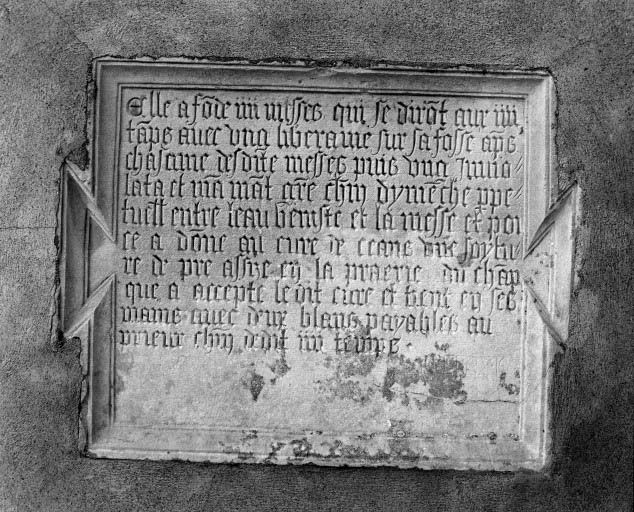 Elle a fōde iiii messes qui se dirōt aux iiii
tāps avec ung libera me sur sa fosse aps
chascune desdite messes puis ung
lata et chūn dymēche ppe
tuell entre leau beniste et la messe et por
ce a dōne au cure de ceans une
re de pre assize en la praerie du chap
que a accepte le cure et tient en ses
mains avec deux blans payables au
prieur chūn iiii temps